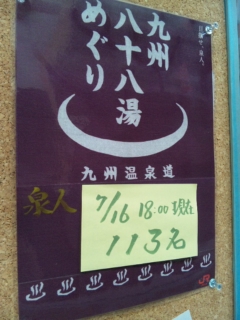 九州
八十八湯
めぐり
九州温泉道
泉人
7/16 18:00 現在
113名
JR